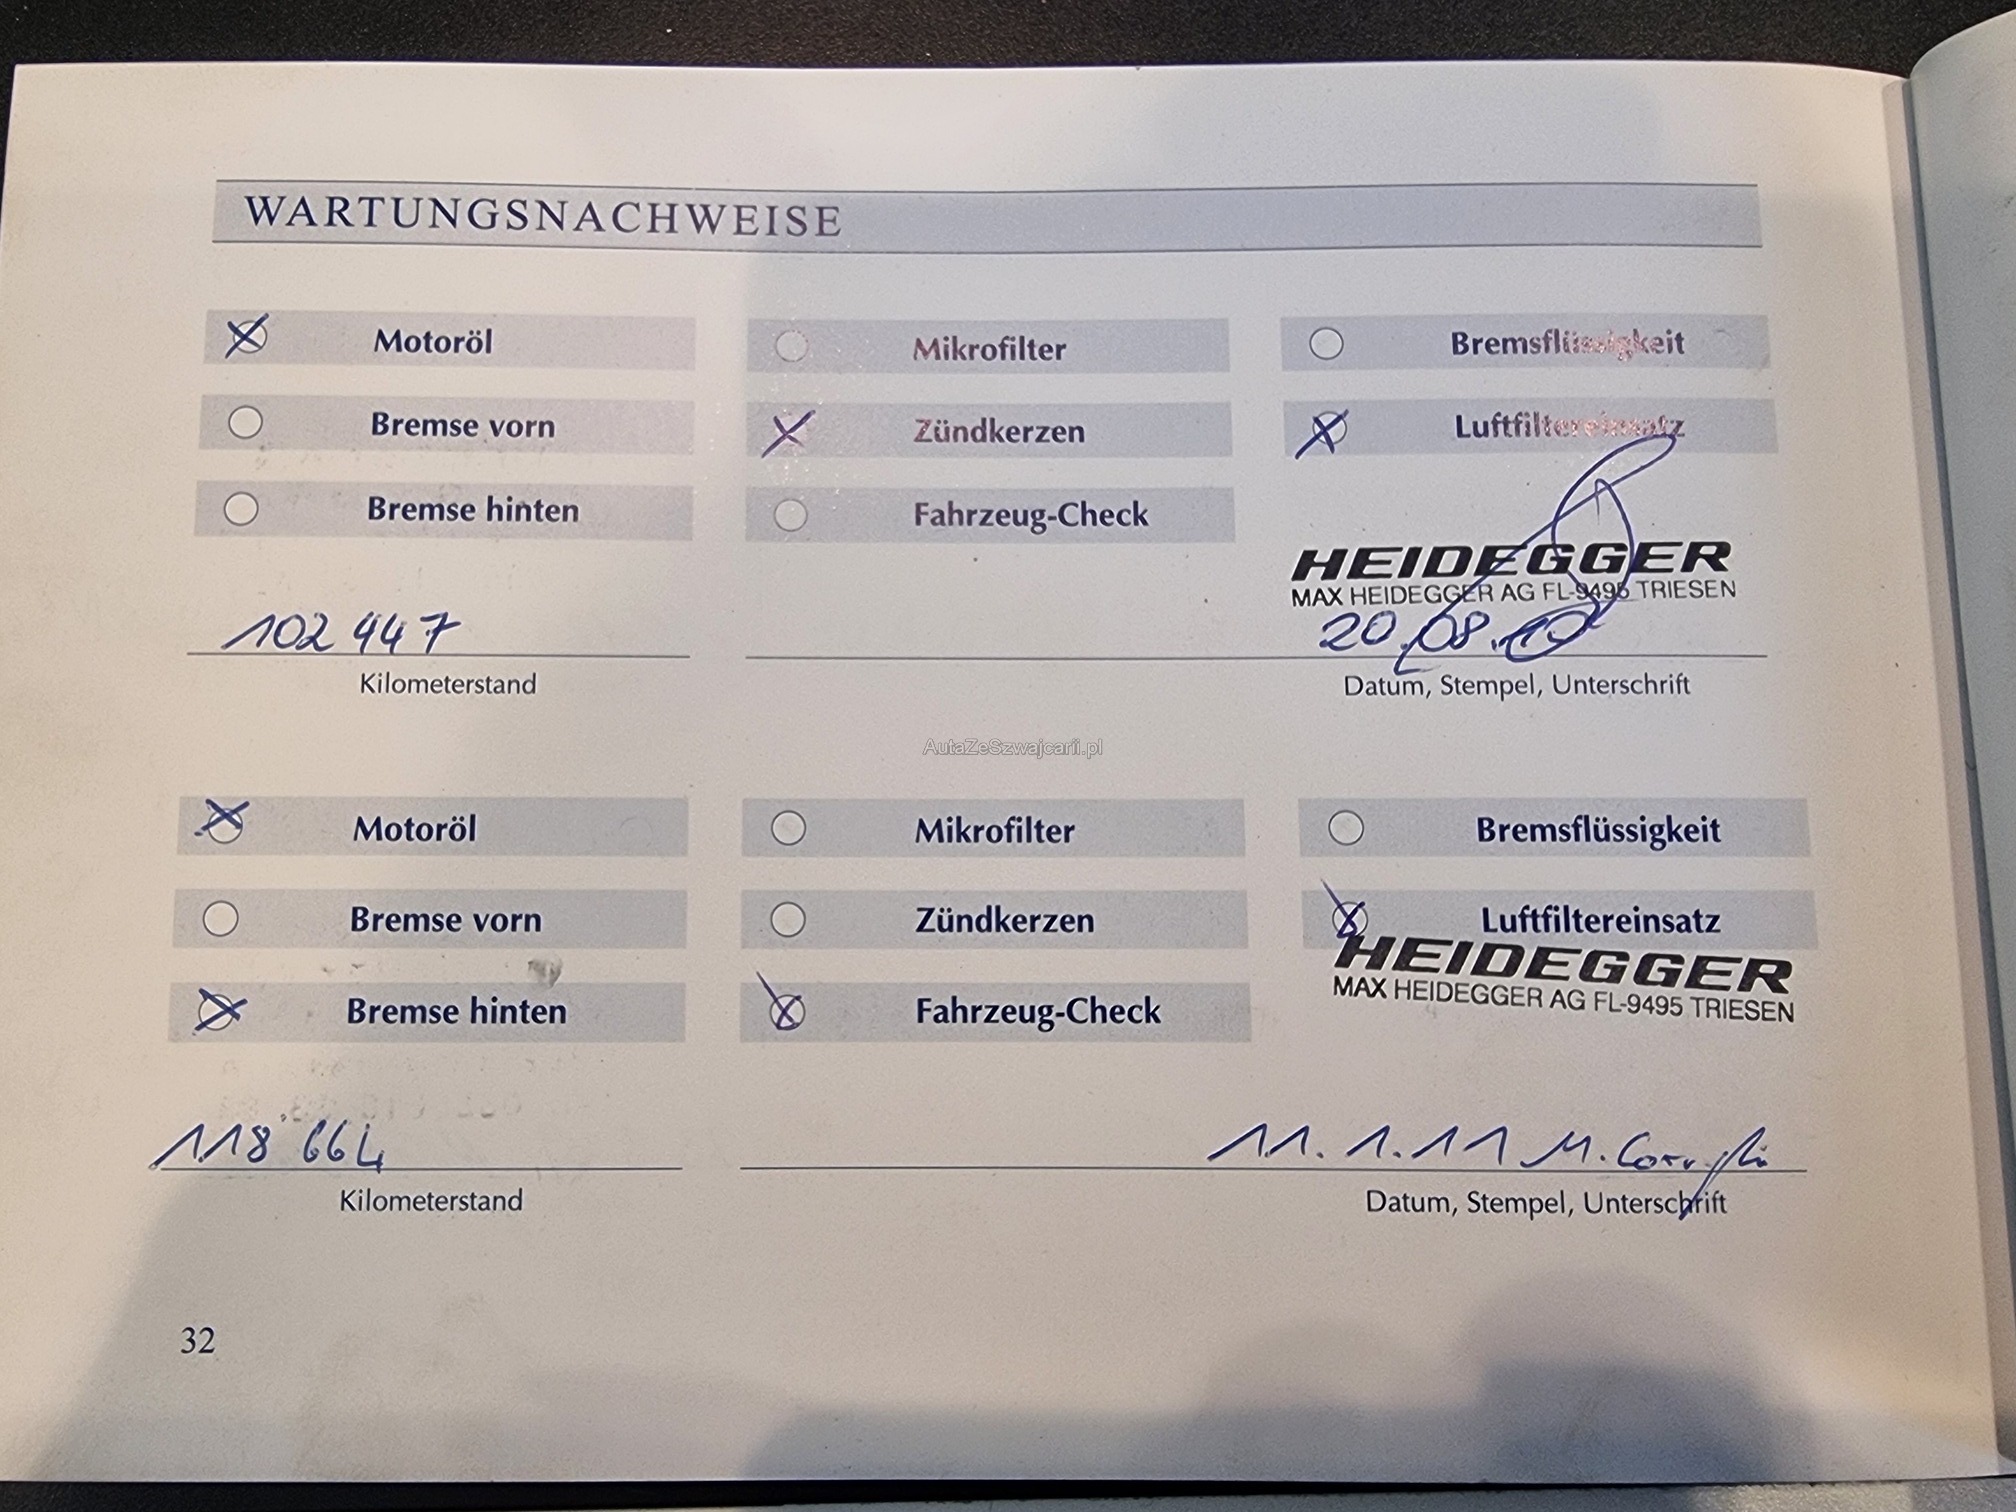 WARTUNGSNACHWEISE
Motoröl Mikrofilter Bremsflüssigkeit
Bremse vorn Zündkerzen Luftfiltereinsatz
Bremse hinten Fahrzeug-Check
HEIDEGGER
MAX HEIDEGGER AG FL-9495 TRIESEN
102 447 20.08.10
Kilometerstand Datum, Stempel, Unterschrift
AutaZeSzwajcarii.pl
Motoröl Mikrofilter Bremsflüssigkeit
Bremse vorn Zündkerzen Luftfiltereinsatz
HEIDEGGER
MAX HEIDEGGER AG FL-9495 TRIESEN
Bremse hinten Fahrzeug-Check
118'664 11.1.11 M.
Kilometerstand Datum, Stempel, Unterschrift
32